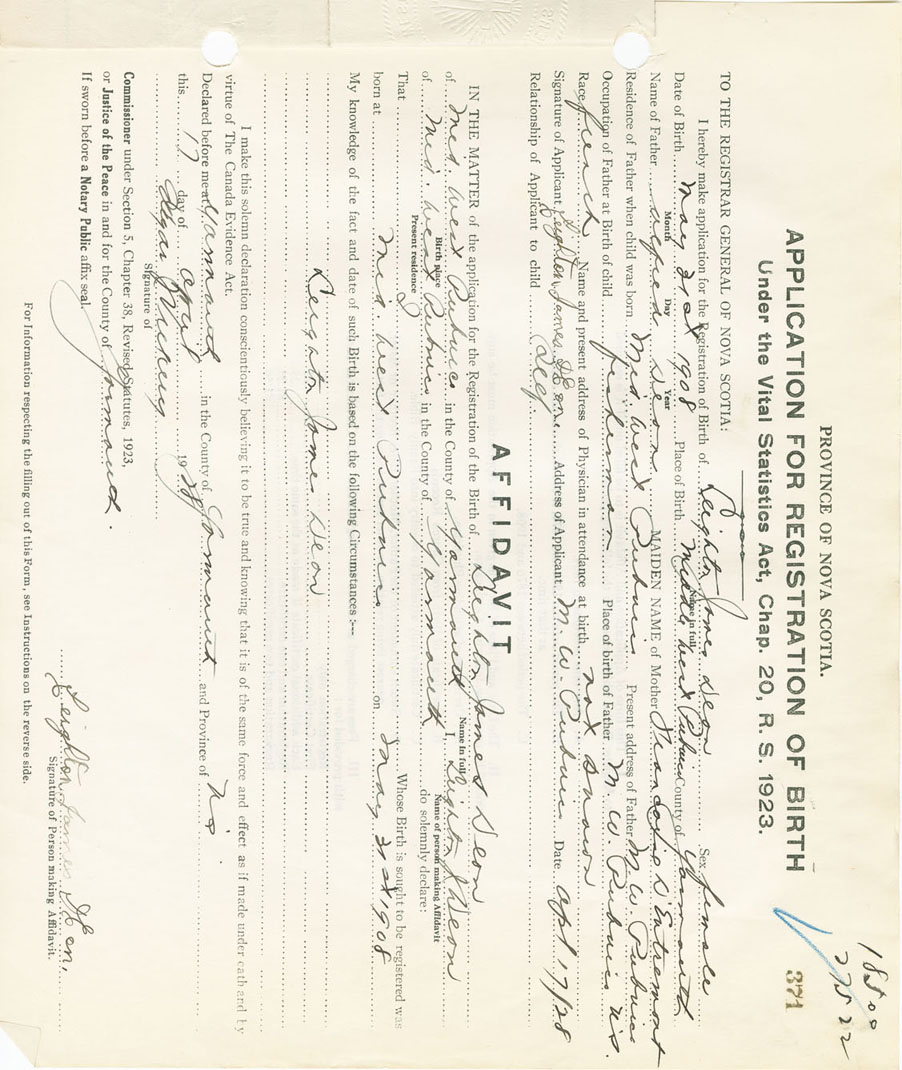 18500
27522
371
PROVINCE OF NOVA SCOTIA.
APPLICATION FOR REGISTRATION OF BIRTH
Under the Vital Statistics Act, Chap. 20, R. S. 1923.
TO THE REGISTRAR GENERAL OF NOVA SCOTIA:
I hereby make application for the Registration of Birth of Leighton James Deon Sex female
Name in full
Date of Birth May 21st 1908 Place of Birth Middle West Pubnico County of Yarmouth
Month Day Year
Name of Father Alfred Deon MAIDEN NAME of Mother D'Entremont
Residence of Father when child was born Mid. West Pubnico Present address of Father M. W. Pubnico
Occupation of Father at Birth of child fisherman Place of birth of Father M. W. Pubnico N.S.
Race french Name and present address of Physician in attendance at birth not known
Signature of Applicant Leighton James Address of Applicant M. W. Pubnico Date Apl 17/28
Relationship of Applicant to child Self
AFFIDAVIT
IN THE MATTER of the application for the Registration of the Birth of Leighton James Deon
Name in full
of Mid. West Pubnico in the County of Yarmouth I, Leighton J Deon
Birth place Name of person making Affidavit
of Mid. West Pubnico in the County of Yarmouth do solemnly declare:
Present residence
That Whose Birth is sought to be registered was
born at Mid. West Pubnico on May 21st 1908
My knowledge of the fact and date of such Birth is based on the following Circumstances :—
Leighton James Deon
I make this solemn declaration conscientiously believing it to be true and knowing that it is of the same force and effect as if made under oath and by
virtue of The Canada Evidence Act.
Declared before me at Yarmouth in the County of Yarmouth and Province of N S
this 17 day of April 1928
Signature of
Commissioner under Section 5, Chapter 38, Revised Statutes, 1923,
or Justice of the Peace in and for the County of Yarmouth.
If sworn before a Notary Public affix seal.
Leighton James
Signature of Person making Affidavit.
For Information respecting the filling out of this Form, see Instructions on the reverse side.